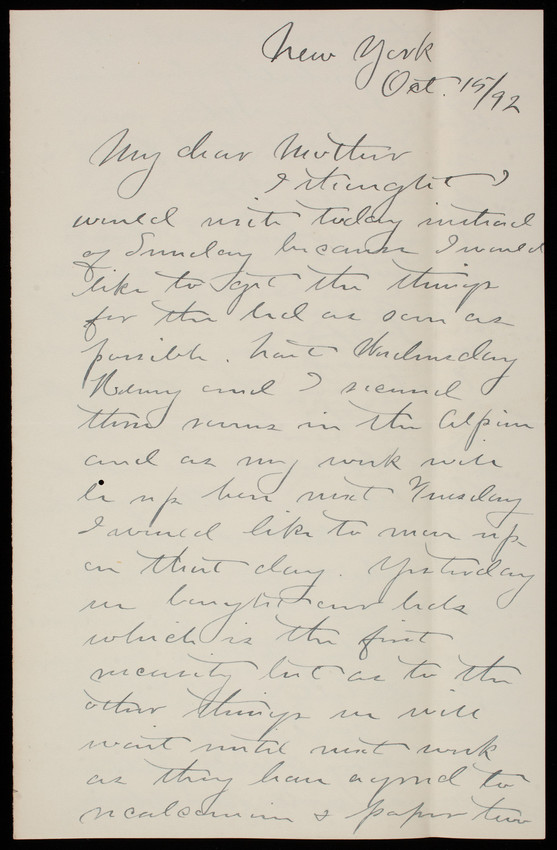 New York
Oct. 15/92
My dear Mother
I thought I
would write today instead
of Sunday because I would
like to get the things
for the bed as soon as
possible. Last Wednesday
Henry and I secured
three rooms in the Alpine
and as my work will
be up here next Tuesday
I would like to move up
on that day. Yesterday
we bought our beds
which is the first
necessity but as to the
other things we will
wait until next week
as they have agreed to
recalsomine & paper two